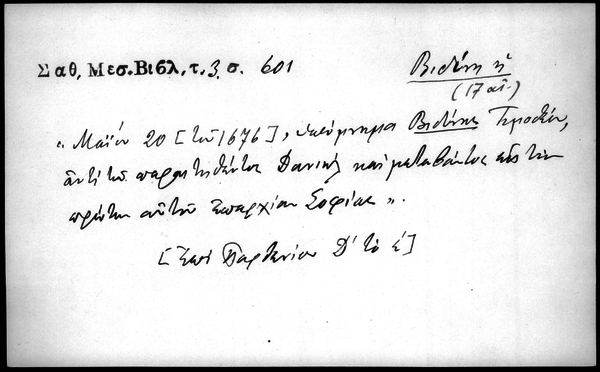 Σαθ, Μεσ. Βιβλ, τ. 3, σ. 601
Βιδύνη ἡ
(17 αἰ.)
« Μαΐου 20 [τοῦ 1676], ὑπόμνημα Βιδύνης Τιμοθέου,
ἀντὶ τοῦ παραιτηθέντος Δανιὴλ καὶ μεταβάντος εἰς τὴν
πρώτην αὐτοῦ ἐπαρχίαν Σοφίας ».
[Ἐπὶ Παρθενίου Δ´ τὸ ε´]